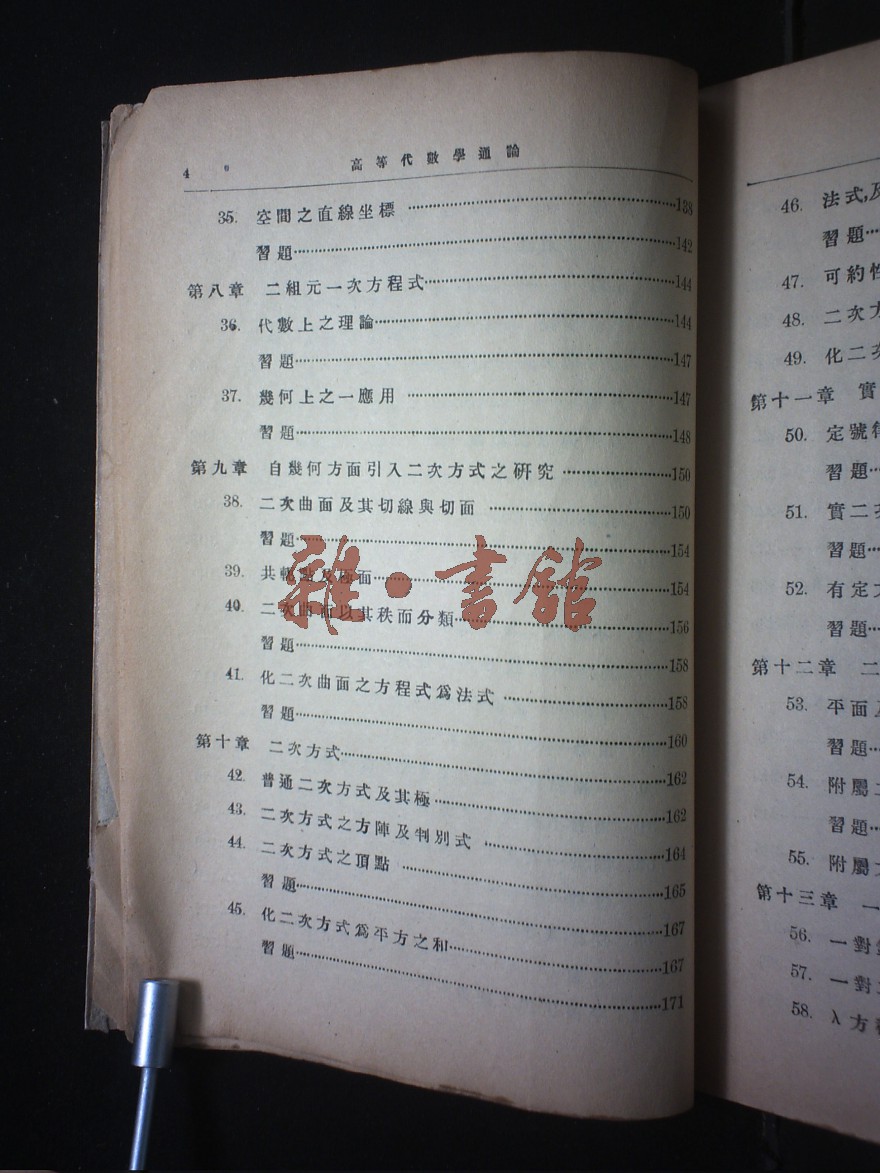 4 高等代數學通論
35. 空間之直線坐標 ……138
習題……142
第八章 二組元一次方程式……144
36. 代數上之理論……144
習題……147
37. 幾何上之一應用 ……147
習題……148
第九章 自幾何方面引入二次方式之研究 ……150
38. 二次曲面及其切線與切面 ……150
習題……154
39. 共軛點及極面……154
40. 二次曲面以其秩而分類……156
習題……158
41. 化二次曲面之方程式爲法式 ……158
習題……160
第十章 二次方式……162
42. 普通二次方式及其極……162
43. 二次方式之方陣及判別式 ……164
44. 二次方式之頂點 ……165
習題……167
45. 化二次方式爲平方之和……167
習題……171
雜·書館
46. 法式,及
習題…
47. 可約性
48. 二次方
49. 化二次
第十一章 實
50. 定號律
習題…
51. 實二次
習題…
52. 有定
習題…
第十二章 二
53. 平面及
習題…
54. 附屬二
習題…
55. 附屬
第十三章 一
56. 一對
57. 一對二
58. λ方程